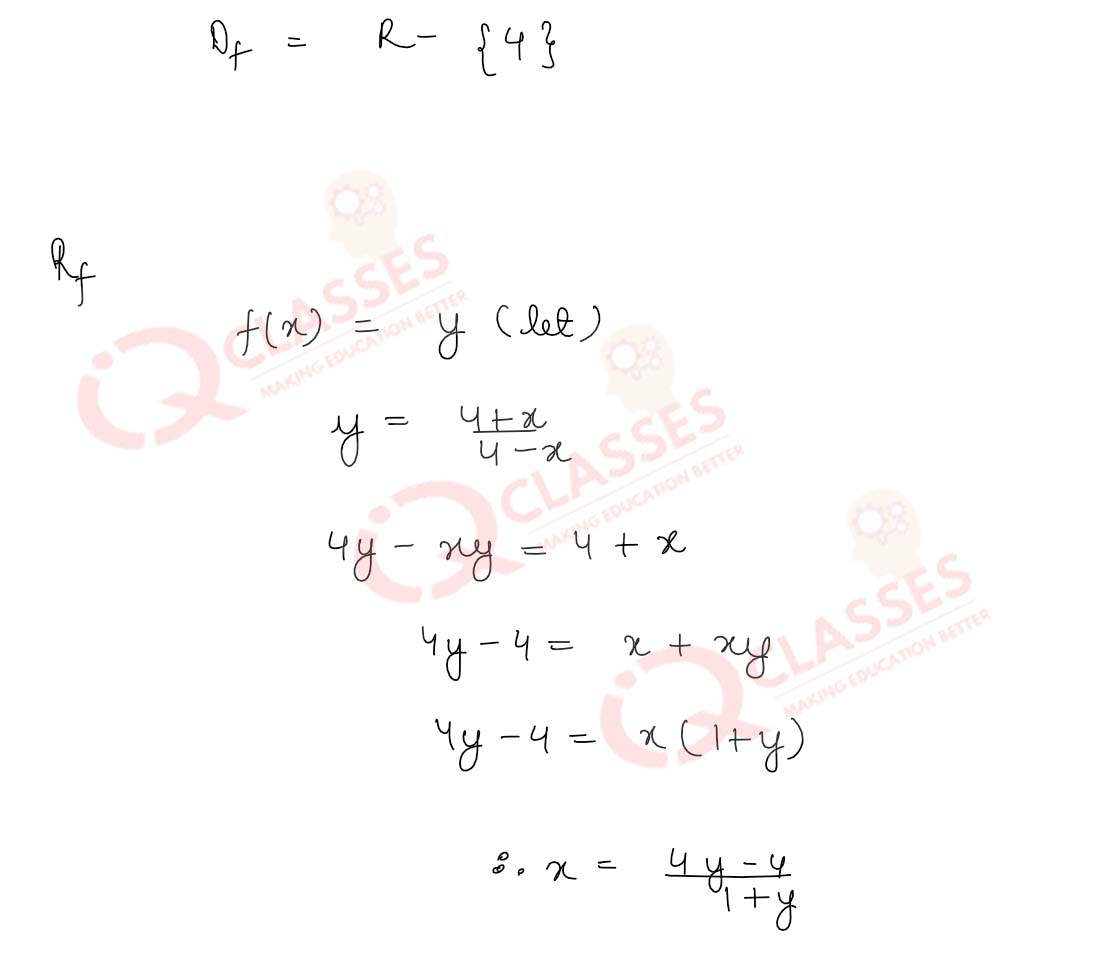 D_f = R - {4}
R_f
f(x) = y (let)
y = \frac{4+x}{4-x}
4y - xy = 4 + x
4y - 4 = x + xy
4y - 4 = x(1+y)
∴ x = \frac{4y-4}{1+y}
QCLASSES
MAKING EDUCATION BETTER
QCLASSES
MAKING EDUCATION BETTER
QCLASSES
MAKING EDUCATION BETTER